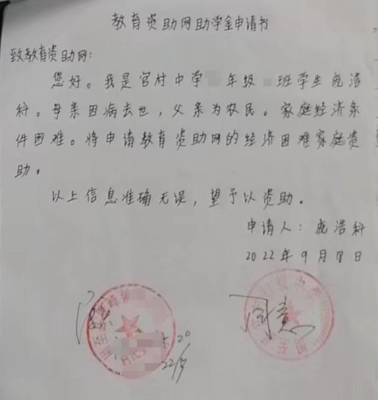 教育资助网助学金申请书
致教育资助网:
您好。我是官村中学 年级 班学生庞浩
科。母亲因病去世，父亲为农民。家庭经济条
件困难。特申请教育资助网的经济困难家庭资
助。
以上信息准确无误，望予以资助。
申请人：庞浩科
2022年9月8日
同意